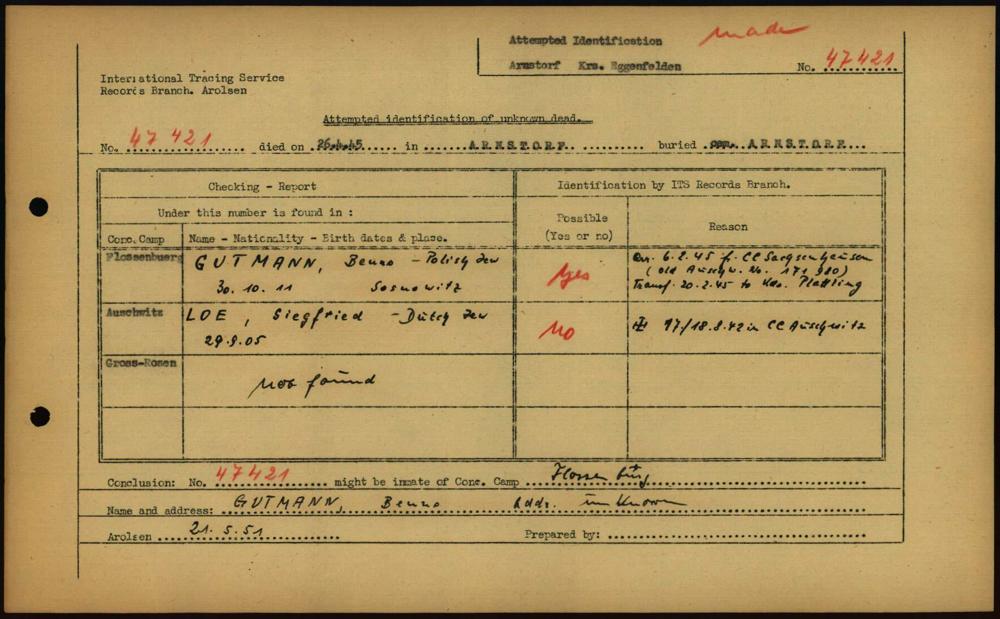 Attempted Identification made
Arnstorf Krs. Eggenfelden No. 47421
International Tracing Service
Records Branch. Arolsen
Attempted identification of unknown dead.
No. 47 421 died on 26.4.45 in ARNSTORF buried com. ARNSTORF
Checking - Report Identification by ITS Records Branch.
Under this number is found in :
Possible
(Yes or no) Reason
Conc. Camp Name - Nationality - Birth dates & place.
Flossenbuerg GUTMANN, Benno - Polish Jew
30.10.11 Sosnowitz
Yes
arr. 6.2.45 f. CC Sachsenhausen
(old Auschw. No. 171 980)
Transf. 20.2.45 to Kdo. Plattling
Auschwitz LOE, Siegfried - Dutch Jew
29.9.05
No
17/18.8.42 in CC Auschwitz
Gross-Rosen
not found
Conclusion: No. 47421 might be inmate of Conc. Camp Flossenbürg
Name and address: GUTMANN, Benno Addr. unknown
Arolsen 21.5.51 Prepared by: